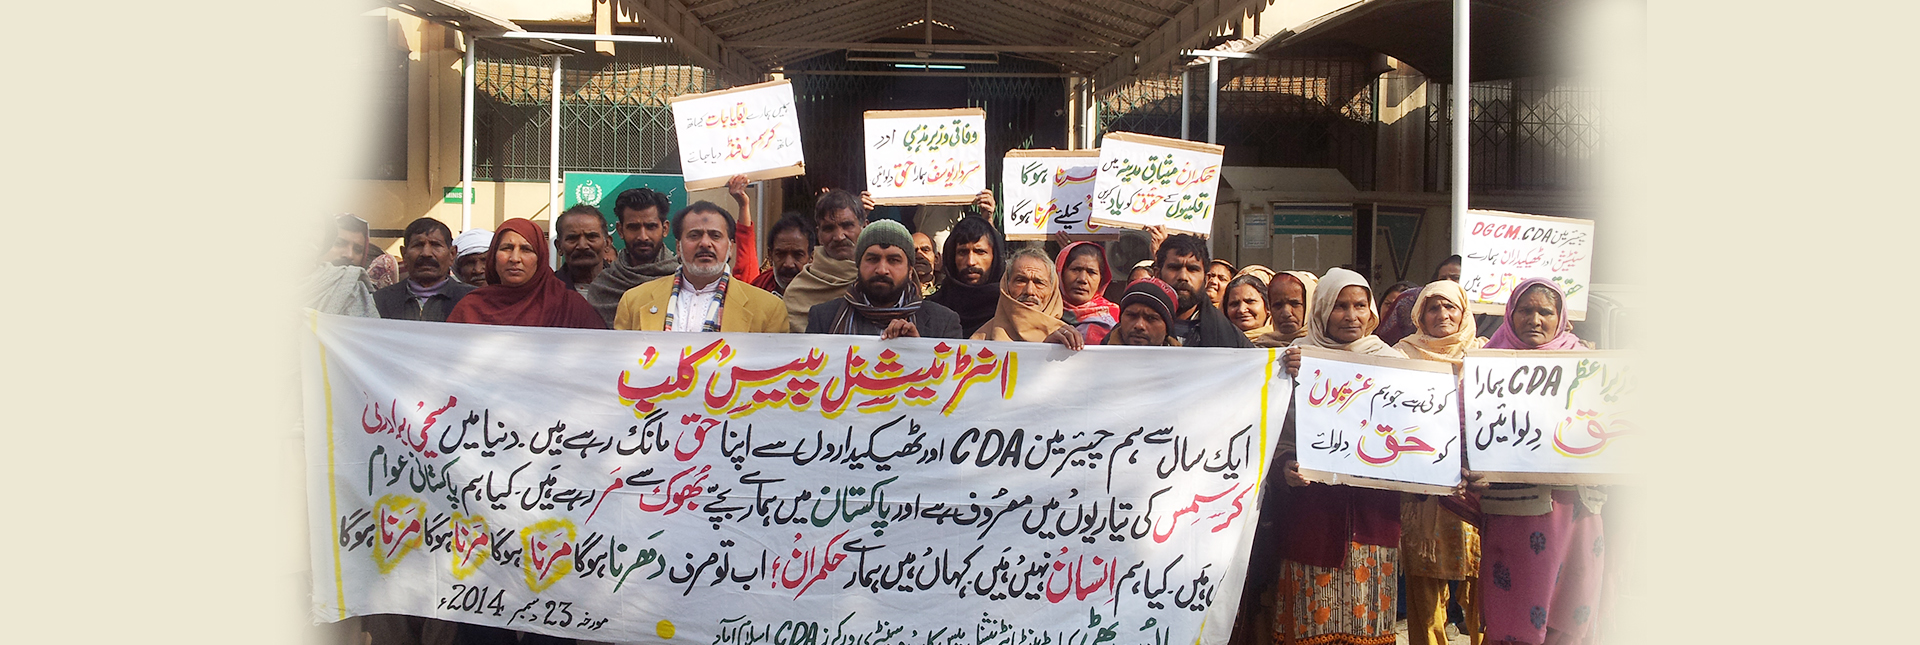 ہمارے بقایا جات کیساتھ
ساتھ کرسمس فنڈ دیا جائے
وفاقی وزیر مذہبی امور
سردار یوسف ہمارا حق دلوائیں
دھرنا ہوگا
کیلئے مرنا ہوگا
حکمران میثاق مدینہ میں
اقلیتوں کے حقوق کو یاد کریں
چیئرمین DGCM.CDA
سینٹیشن اور ٹھیکیداران ہمارے
حق
ہیں
انٹرنیشنل پیس کلب
ایک سال سے ہم چیئرمین CDA اور ٹھیکیداروں سے اپنا حق مانگ رہے ہیں۔ دنیا میں مسیحی برادری
کرسمس کی تیاریوں میں مصروف ہے اور پاکستان میں ہمارے بچے بھوک سے مر رہے ہیں۔ کیا ہم پاکستانی عوام
نہیں ہیں۔ کیا ہم انسان نہیں ہیں۔ کہاں ہیں ہمارے حکمران؟ اب تو صرف دھرنا ہوگا مرنا ہوگا مرنا ہوگا مرنا ہوگا
مورخہ 23 دسمبر 2014ء
بھٹی
انٹرنیشنل پیس کلب و سینٹری ورکرز CDA اسلام آباد
کوئی ہے جو ہم غریبوں
کو حق دلوائے
وزیراعظم CDA ہمارا
حق دلوائیں